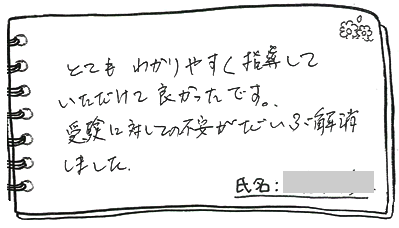 とても わかりやすく指導して
いただけて良かったです。
受験に対しての不安がだいぶ解消
しました.
氏名: